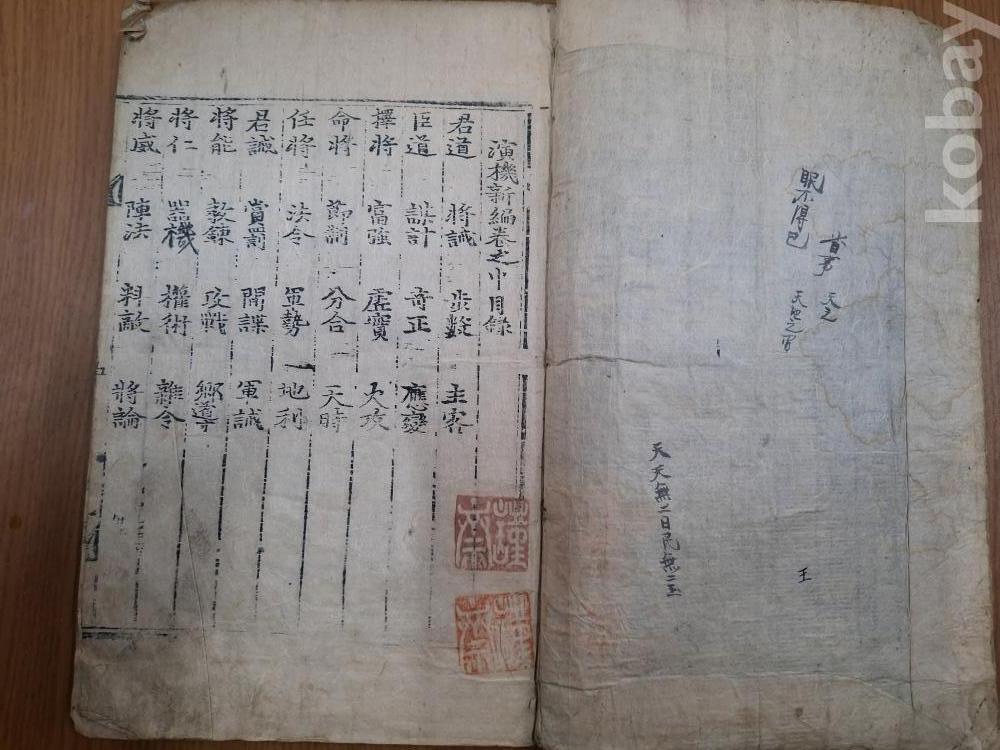 kobay
天之
眠不得已
天天無二日民無二王
王
演機新編卷之中目錄
君道 將誡 主客
臣道 謀計 奇正 應變
擇將 富強 虛實 火攻
命將 節制 分合 天時
任將 法令 軍勢 地利
君誡 賞罰 間諜 軍誡
將能 敎鍊 攻戰 鄕導
將仁 器機 權術 雜令
將威 陣法 料敵 將論